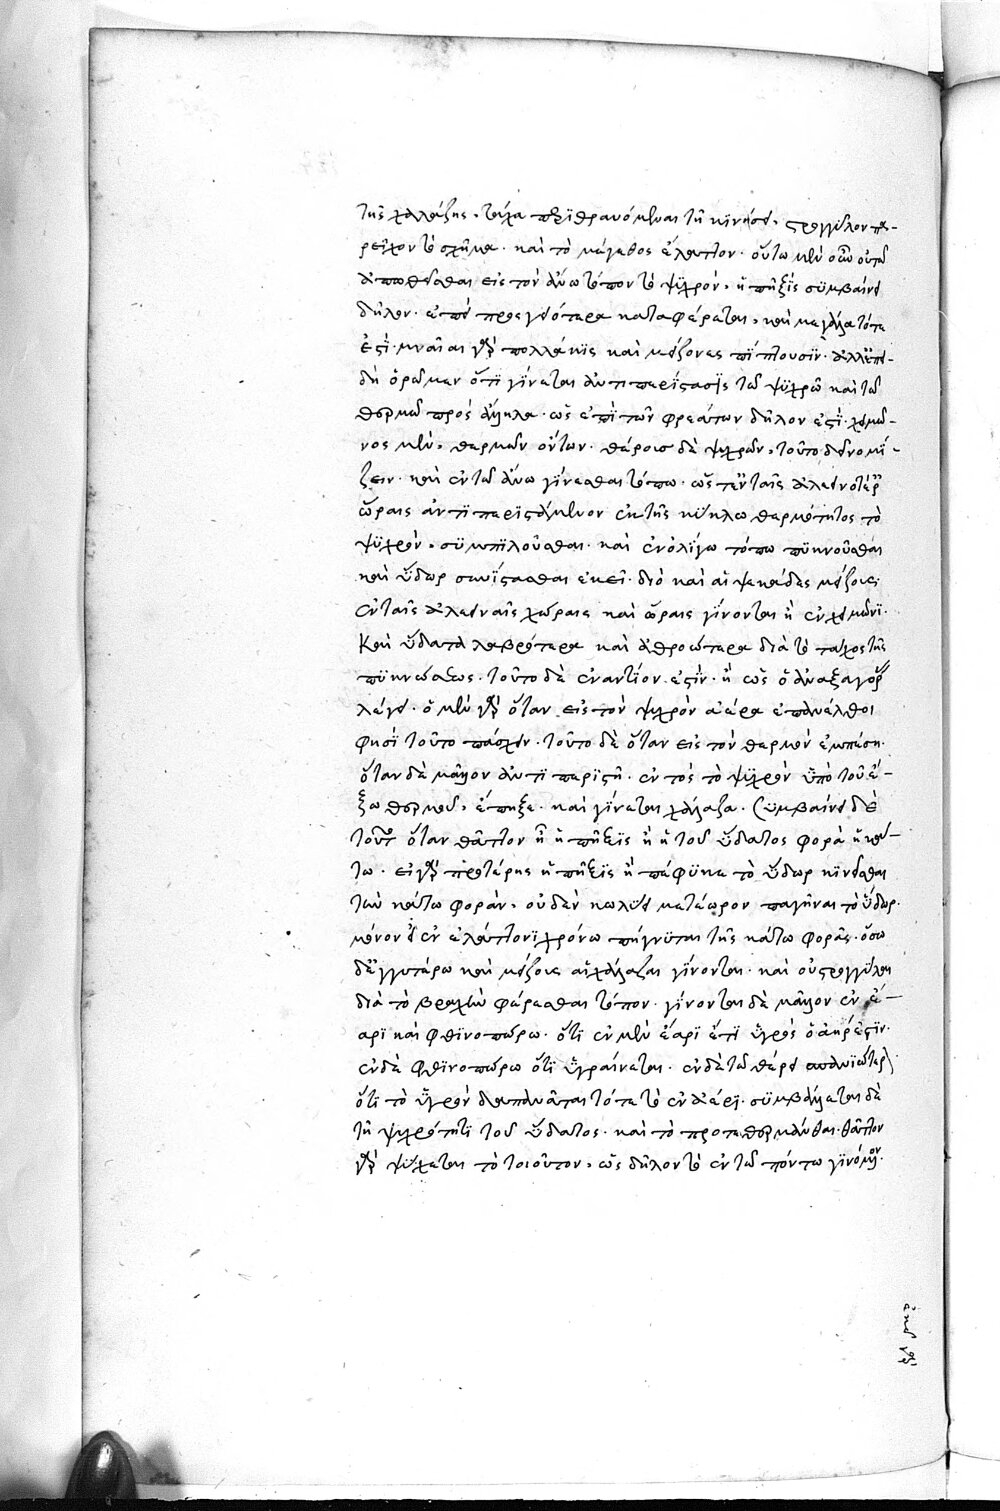 τῆς χαλάζης. τάχα περιθραυόμεναι τῆ κινήσει, στρογγύλον πα-
ρεῖχον τὸ σχῆμα. καὶ τὸ μέγεθος ἔλαττον. οὕτω μὲν οὖν οὐ τῶ
ἀπωθεῖσθαι εἰς τὸν ἄνω τόπον τὸ ψυχρόν, ἡ πῆξις συμβαίνει
δῆλον. ἐπεὶ προσγειότερα καταφέρεται, καὶ μεγάλα τότε
ἐστί. μναῖαι γὰρ πολλάκις καὶ μείζονες πίπτουσιν. ἀλλ' ἐπει-
δὴ ὁρῶμεν ὅτι γίνεται ἀντιπερίστασις τῶ ψυχρῶ καὶ τῶ
θερμῶ πρὸς ἄλληλα. ὡς ἐπὶ τῶν φρεάτων δῆλόν ἐστι. χειμῶ-
νος μὲν, θερμῶν ὄντων. θέρους δὲ ψυχρῶν, τοῦτο δεῖ νομί-
ζειν. καὶ ἐν τῶ ἄνω γίνεσθαι τόπω. ὥστ' ἐν ταῖς ἀλεεινοτέραις
ὥραις ἀντιπεριιστάμενον ἐκ τῆς κύκλω θερμότητος τὸ
ψυχρόν, συμπιλοῦσθαι. καὶ ἐν ὀλίγω τόπω πυκνοῦσθαι
καὶ ὕδωρ συνίστασθαι ἐκεῖ. διὸ καὶ αἱ ψεκάδες μείζους
ἐν ταῖς ἀλεειναῖς χώραις καὶ ὥραις γίνονται ἢ ἐν χειμῶνι.
Καὶ ὕδατα λαβρότερα καὶ ἀθροώτερα διὰ τὸ τάχος τῆς
πυκνώσεως. τοῦτο δὲ ἐναντίον ἐστὶν. ἢ ὡς ὁ ἀναξαγόρας
λέγει. ὁ μὲν γὰρ ὅταν εἰς τὸν ψυχρὸν ἀέρα ἐπανέλθοι
φησὶ τοῦτο πάσχειν. τοῦτο δὲ ὅταν εἰς τὸν θερμὸν ἐμπέση.
ὅταν δὲ μᾶλλον ἀντιπεριστῆ. ἐντὸς τὸ ψυχρὸν ὑπὸ τοῦ ἔ-
ξω θερμοῦ, ἔπηξε. καὶ γίνεται χάλαζα. Συμβαίνει δὲ
τοῦτο ὅταν θᾶττον ἦ ἡ πῆξις ἢ ἡ τοῦ ὕδατος φορὰ ἡ κά-
τω. εἰ γὰρ προτέρης ἡ πῆξις ἢ πέφυκε τὸ ὕδωρ κινεῖσθαι
τὴν κάτω φορὰν, οὐδὲν κωλύει μετέωρον παγῆναι τὸ ὕδωρ.
μόνον εἰ ἐν ἐλάττονι χρόνω πήγνυται τῆς κάτω φορᾶς. ὅσω
δ' ἐγγυτέρω καὶ μείζους αἱ χάλαζαι γίνονται. καὶ οὐ στρογγύλαι
διὰ τὸ βραχὺν φέρεσθαι τόπον. γίνονται δὲ μᾶλλον ἐν ἔ-
αρι καὶ φθινοπώρω. ὅτι ἐν μὲν ἔαρι ἔτι ὑγρὸς ὁ ἀήρ ἐστιν.
ἐν δὲ φθινοπώρω ὅτι ὑγραίνεται. ἐν δὲ τῶ θέρει σπανιώτερον.
ὅτι τὸ ὑγρὸν δαπανᾶται τότε τὸ ἐν ἀέρι. συμβάλλεται δὲ
τῆ ψυχρότητι τοῦ ὕδατος. καὶ τὸ προτεθερμάνθαι. θᾶττον
γὰρ ψύχεται τὸ τοιοῦτον, ὡς δῆλον τὸ ἐν τῶ πόντω γινόμενον.